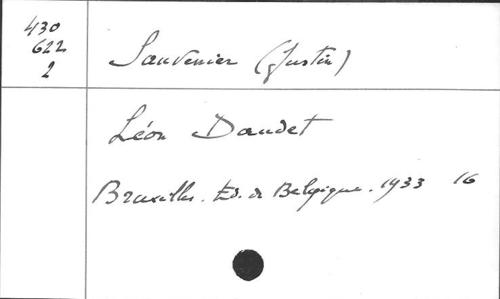 430
622
2
Sauvenier (Justin)
Léon Daudet
Bruxelles. Ed. de Belgique. 1933 16